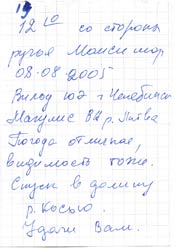 19
12 10 со стороны
ручья Моисеи мор
08.08.2005
Вильду юд г Челябинск
Магулис ВИ р. Литва
Погода отличная,
видимость тоже.
Спуск в долину
р. Косью.
Удачи Вам.